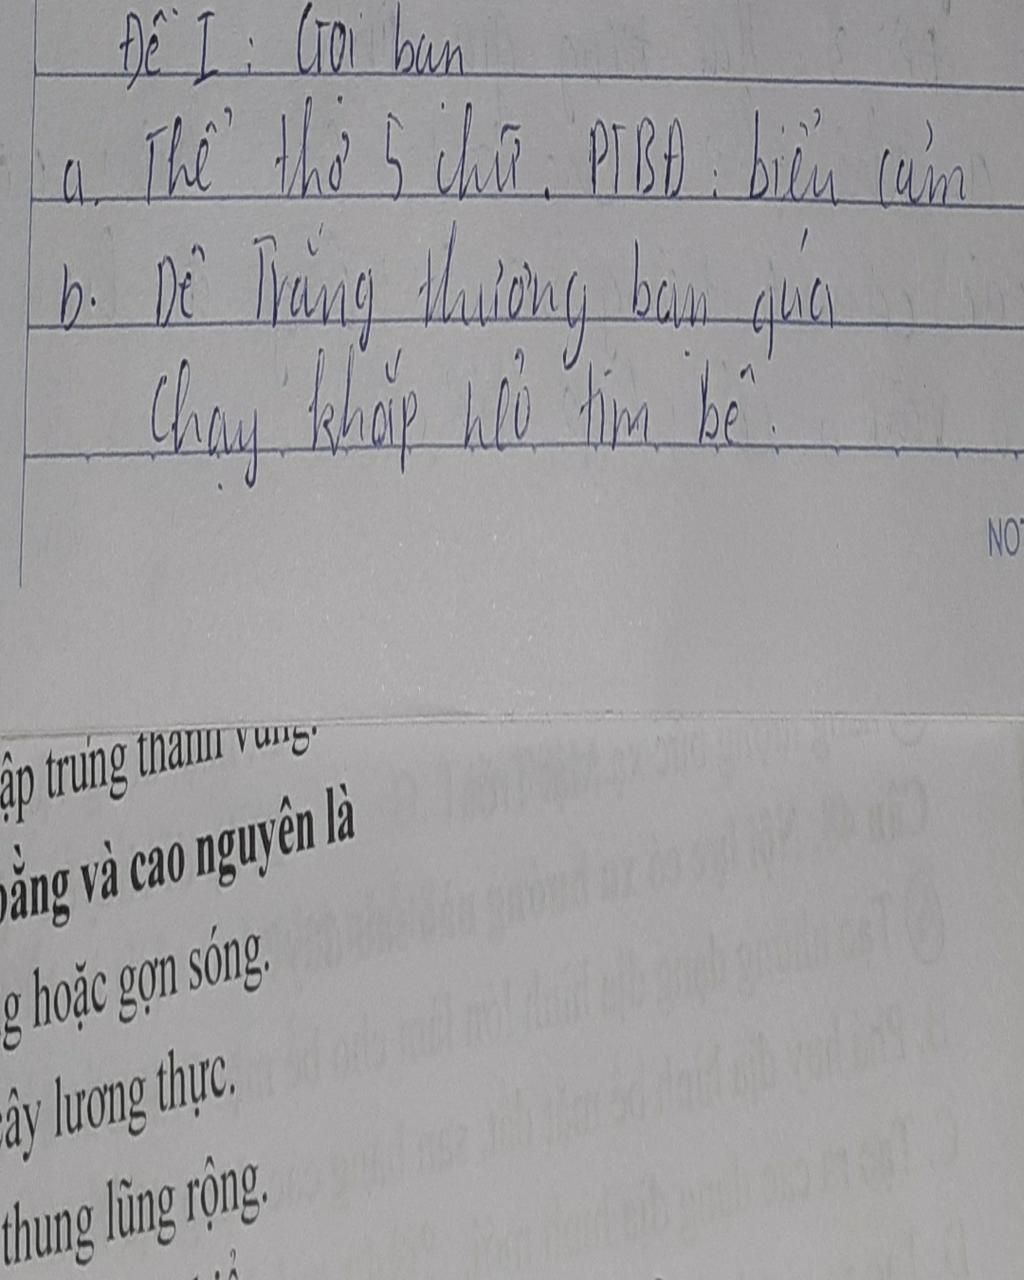 Đề I: Gọi bạn
a. Thể thơ 5 chữ. PTBĐ: biểu cảm
b. Dê Trắng thương bạn quá
Chạy khắp nẻo tìm bê.
NOT
ập trung thành vùng.
bằng và cao nguyên là
g hoặc gợn sóng.
cây lương thực.
thung lũng rộng.